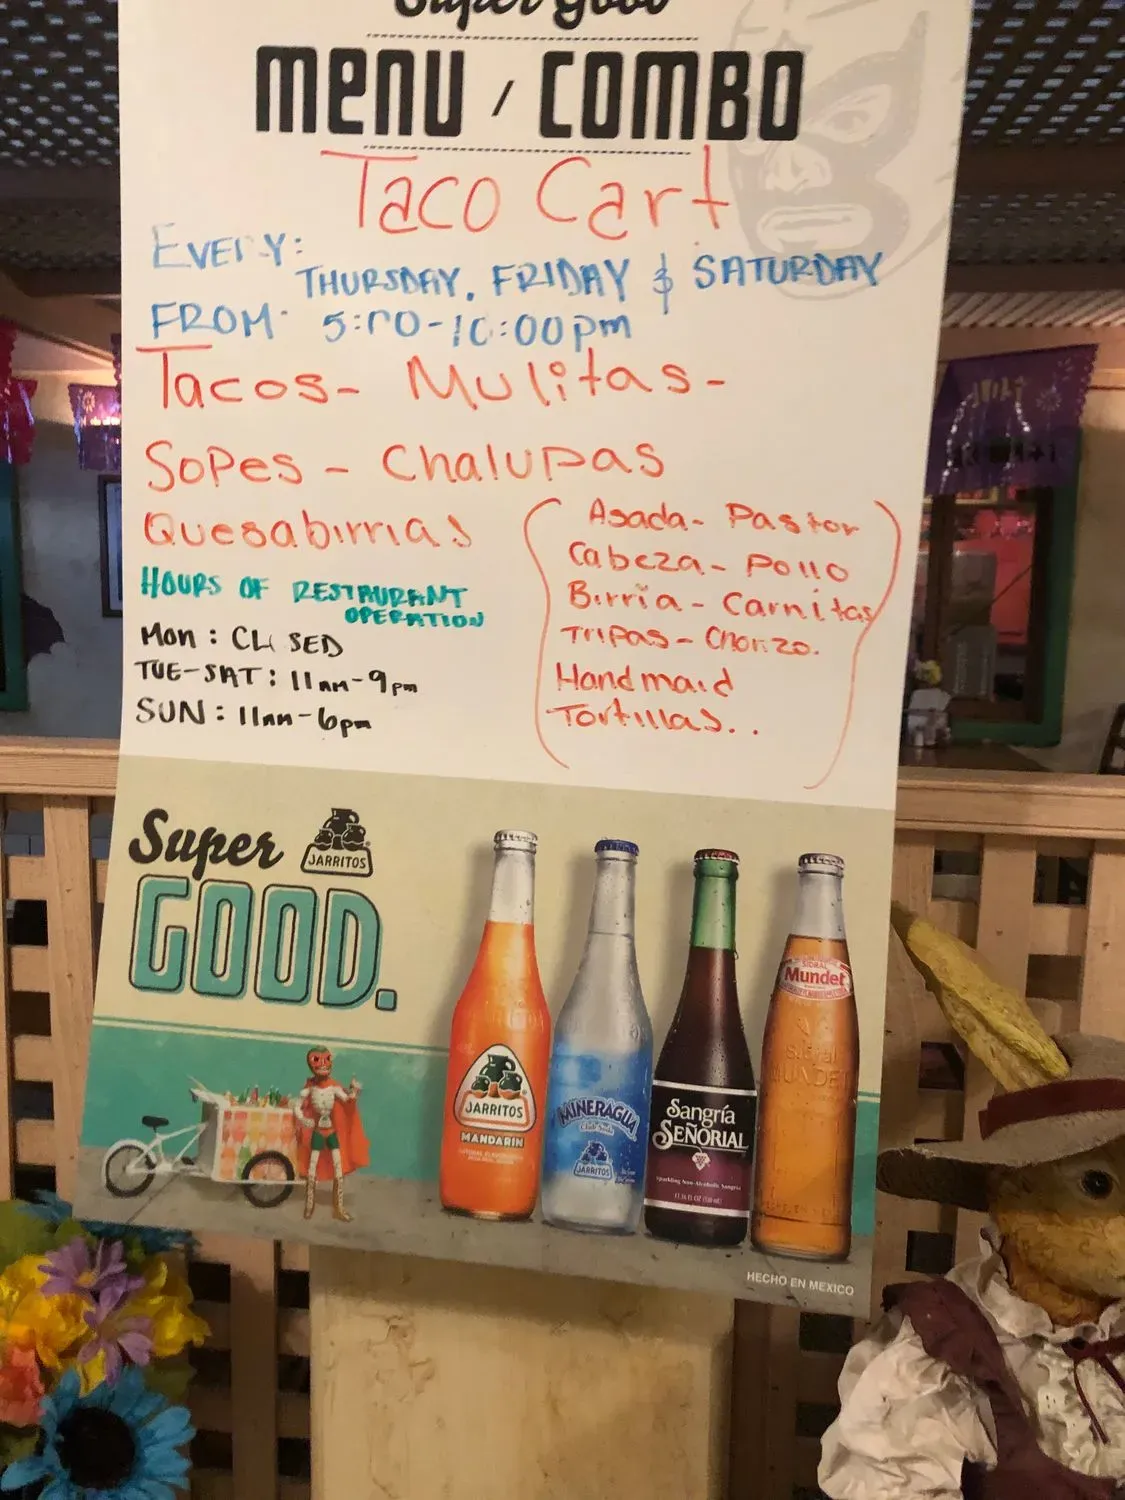 Super Good
MENU / COMBO
Taco Cart
EVERY:
THURSDAY, FRIDAY & SATURDAY
FROM: 5:00-10:00pm
Tacos- Mulitas-
Sopes - Chalupas
Quesabirrias
Asada- Pastor
Cabeza- Pollo
Birria - Carnitas
Tripas- Chorizo.
Handmaid
Tortillas..
HOURS OF RESTAURANT
OPERATION
Mon: CLOSED
TUE-SAT: 11AM-9pm
SUN: 11AM-6pm
Super
JARRITOS
GOOD.
JARRITOS
MANDARIN
MINERAGUA
Club Soda
JARRITOS
Sangría
SEÑORIAL
Sparkling Non-Alcoholic Sangria
11.16 FL OZ (330 mL)
SIDRAL
Mundet
Sidral
MUNDET
HECHO EN MEXICO